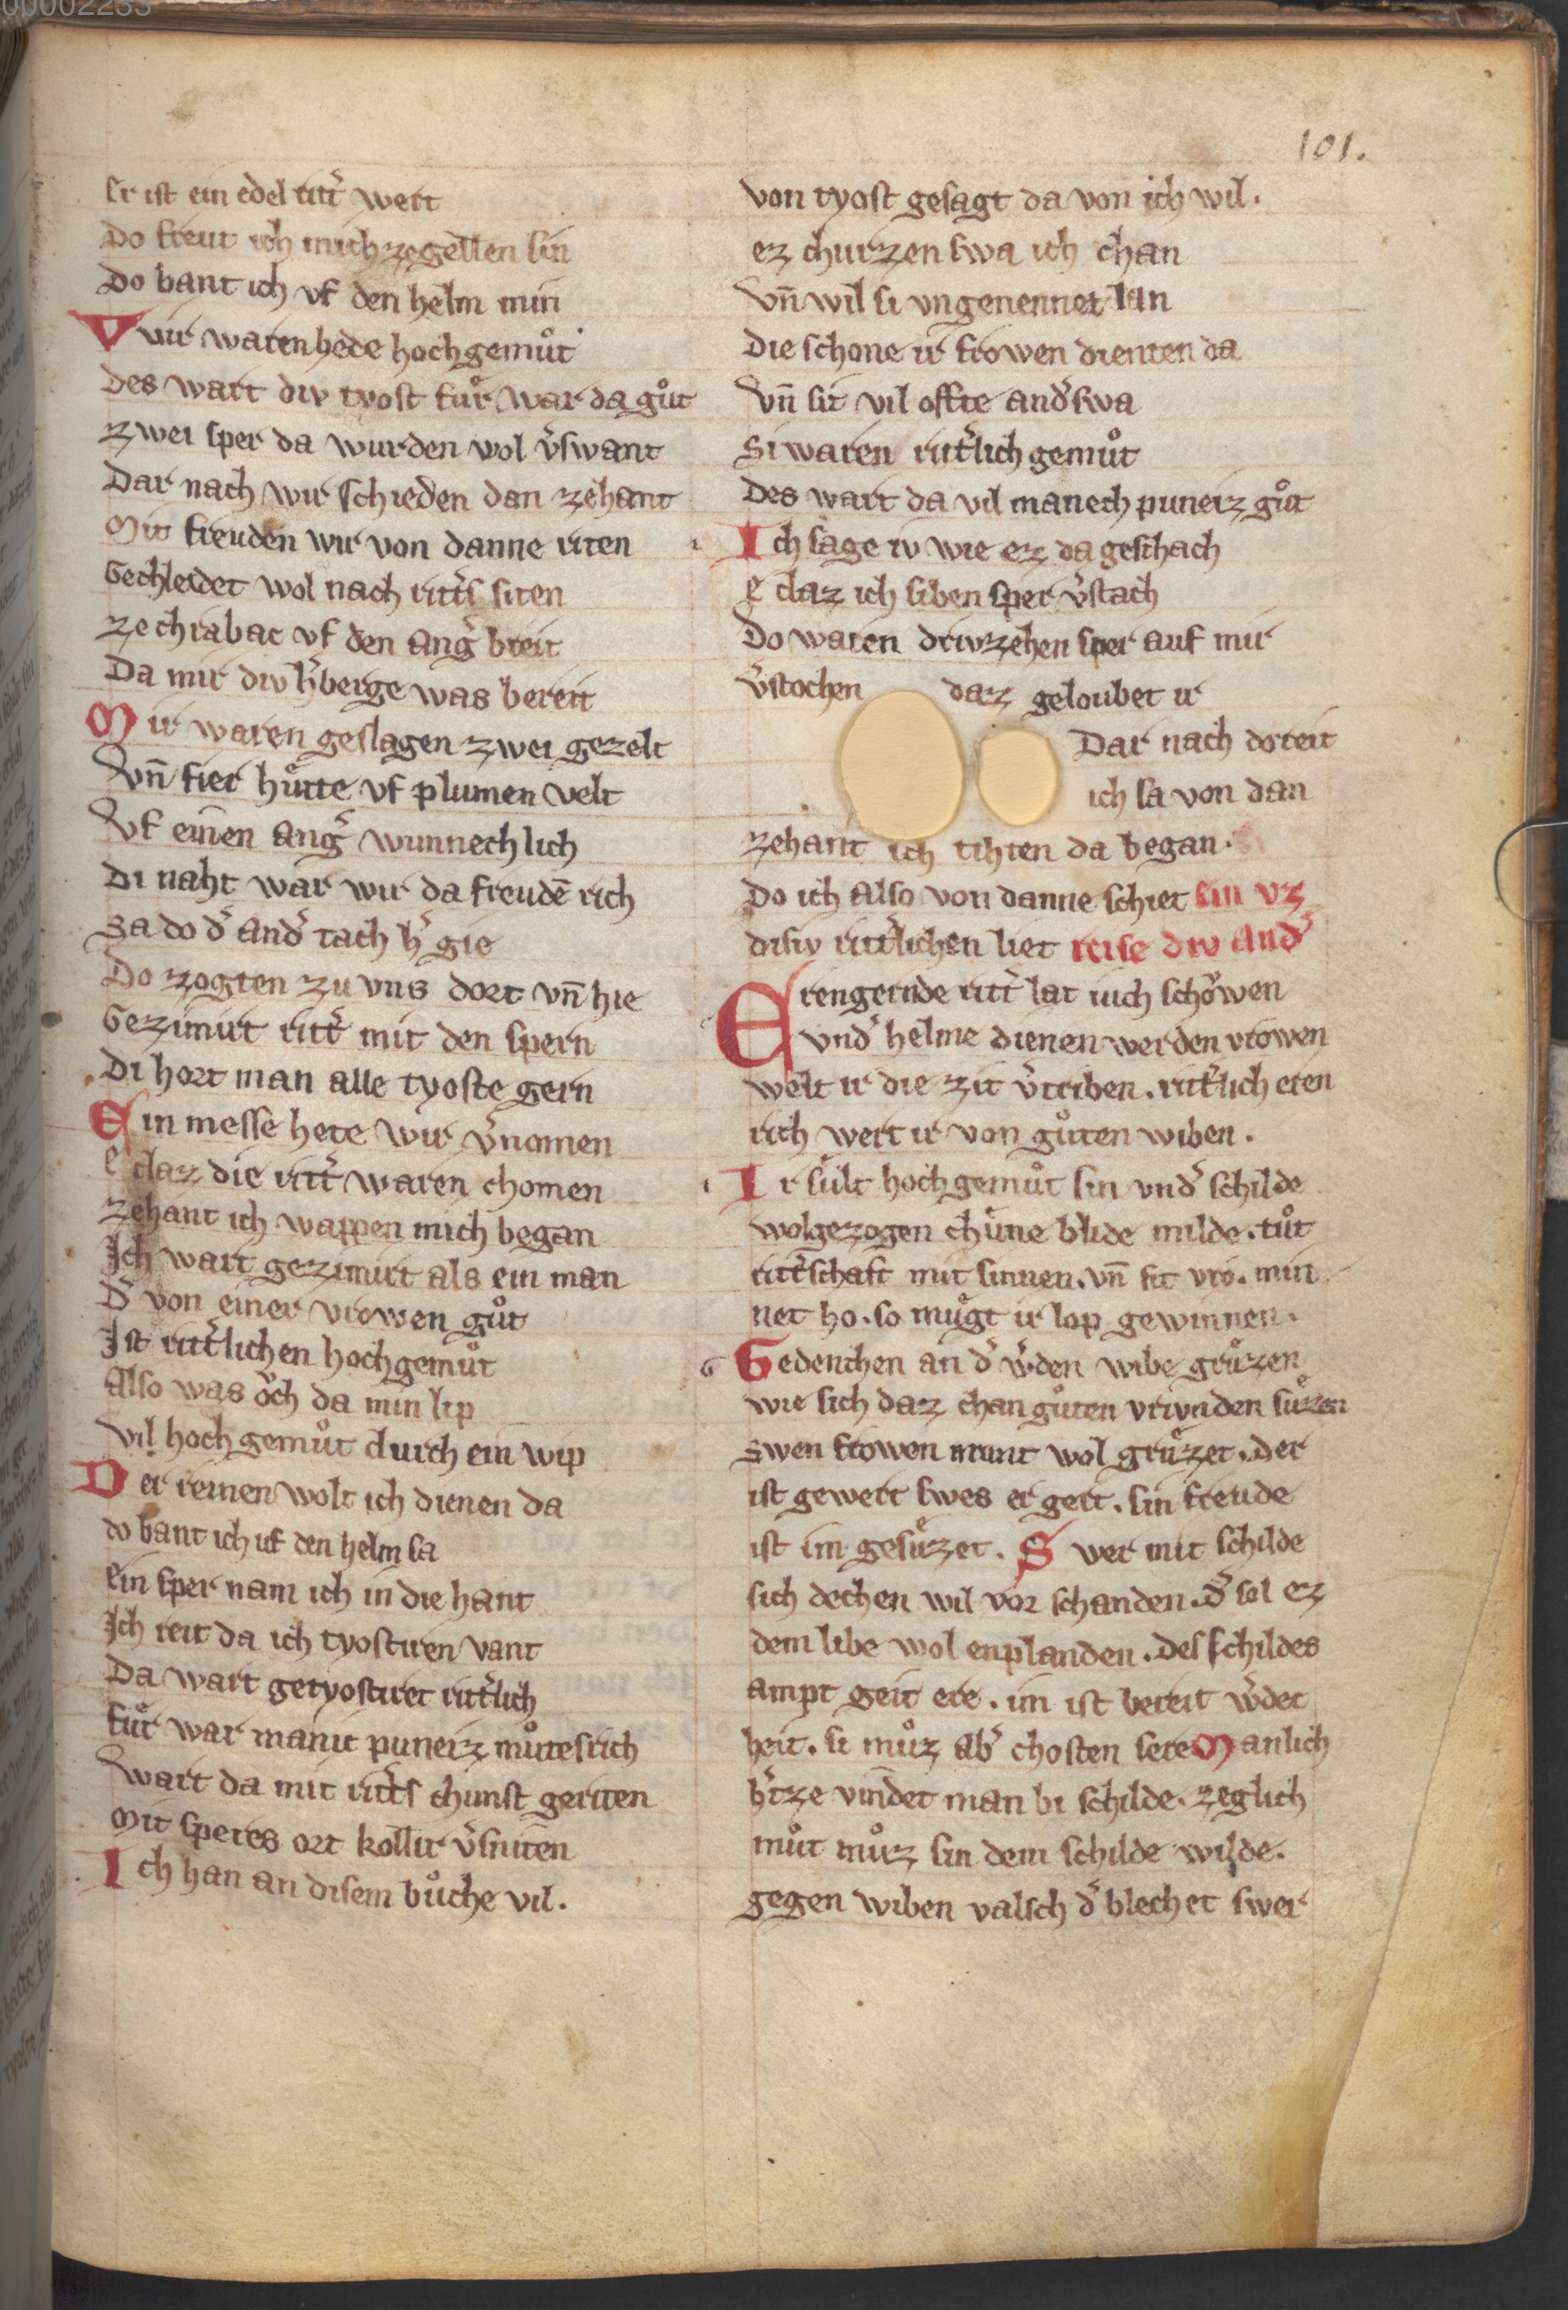 00002233
101.
Er ist ein edel ritt̓ wert
Do freut ich mich zegellen sin
Do bant ich vf den helm min
Wir waren bede hochgemůt
Des wart div tyost fůr war da gůt
zwei sper da wurden wol v̓swant
Dar nach wir schieden dan zehant
Mit freuden wir von danne riten
Gechleidet wol nach ritt̓s siten
ze chrabac vf den ang̓ breit
Da mir div h̓berge was bereit
Mir waren geslagen zwei gezelt
Vn̄ fier hůtte vf plumen velt
Vf einen ang̓ wunnechlich
Di naht war wir da freudē rich
Sa do d̓ and̓ tach h̓ gie
Do zogten zu vns dort vn̄ hie
Gezimirt ritt̓ mit den spern
Di hort man alle tyoste gern
Ein messe hete wir v̓nomen
e daz die ritt̓ waren chomen
zehant ich wappen mich began
Ich wart gezimirt als ein man
D̓ von einer vrowen gůt
Ist ritt̓lichen hochgemůt
Also was och da min lip
Vil hochgemůt durch ein wip
Der reinen wolt ich dienen da
do bant ich uf den helm sa
Ein sper nam ich in die hant
Ich reit da ich tyostiren vant
Da wart getyostiret ritt̓lich
fůr war manic puneiz můtesrich
Wart da mit ritt̓s chunst geriten
Mit speres ort kollir v̓sniten
Ich han an disem bůche vil.
von tyost gesagt da von ich wil.
ez churzen swa ich chan
Vn̄ wil si vngenennet lan
Die schone ir frowen dienten da
Vn̄ sit vil offte and̓swa
Si waren ritt̓lich gemůt
Des wart da vil manech puneiz gůt
Ich sage iv wie ez da geschach
e daz ich siben sper v̓stach
Do waren driwzehen sper auf mir
v̓stochen daz geloubet ir
Dar nach do reit
ich sa von dan
zehant ich tihten da began.
Do ich also von danne schiet ein vz
disiv ritt̓lichen liet reise div and̓
Erengernde ritt̓ lat iuch schowen
vnd̓ helme dienen werden vrowen
welt ir die zit v̓triben. ritt̓lich eren
rich wert ir von gůten wiben.
Ir sůlt hochgemůt sin vnd̓ schilde
wolgezogen chůne blide milde. tůt
ritt̓schaft mit sinnen. vn̄ sit vro. min
net ho. so můgt ir lop gewinnen.
Gedenchen an d̓ w̓den wibe grůzen
wie sich daz chan gůten vrivnden sůzen
swen frowen munt wol grůzet. der
ist gewert swes er gert. sin freude
ist im gesůzet. Swer mit schilde
sich dechen wil vor schanden. d̓ sol ez
dem libe wol enplanden. Des schildes
ampt geit ere. im ist bereit w̓dec
heit. si můz ab̓ chosten sere Manlich
h̓tze vindet man bi schilde. zeglich
můt můz sin dem schilde wilde.
gegen wiben valsch d̓ blechet swer